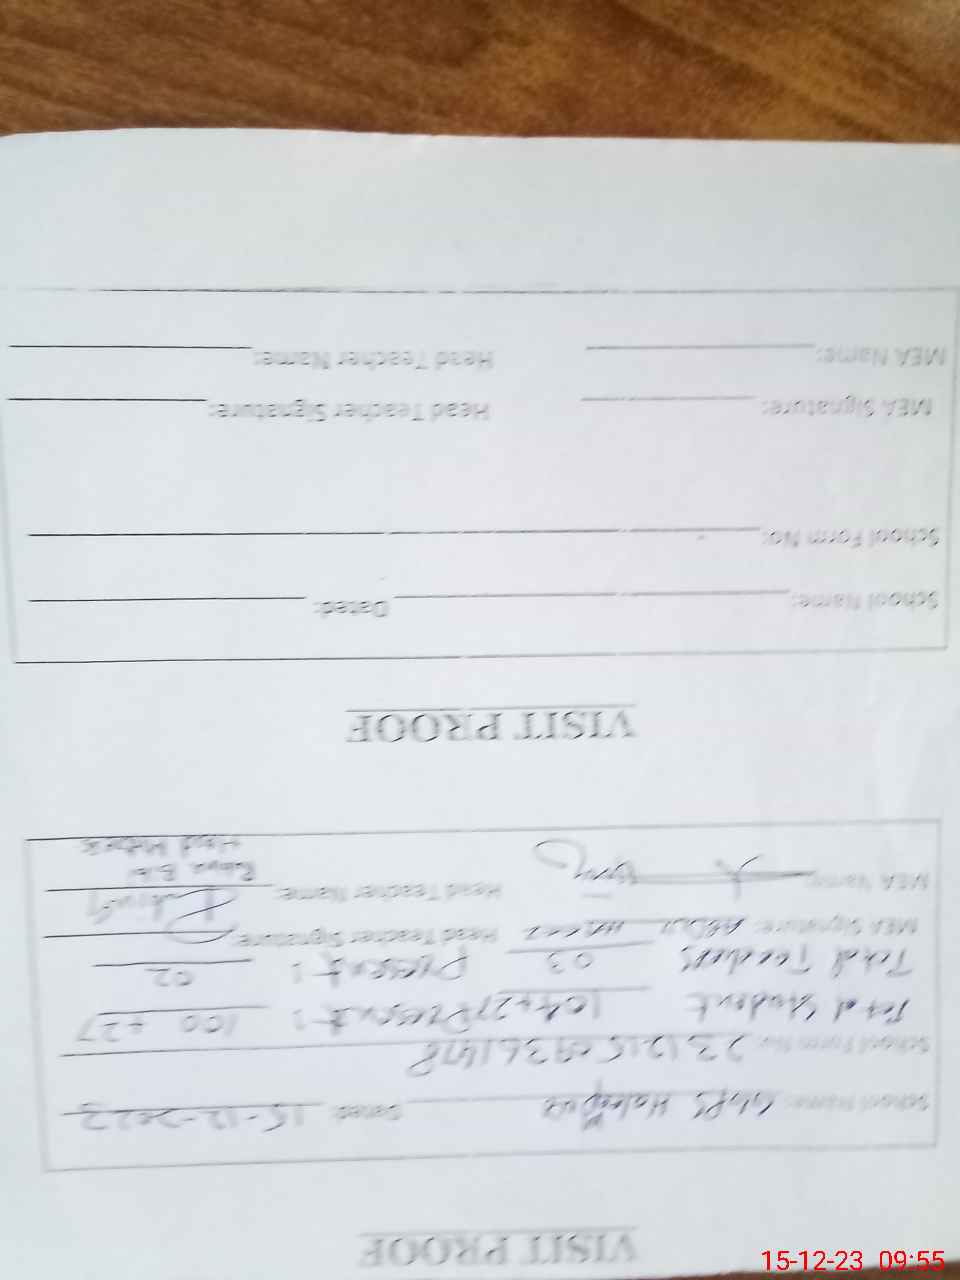 VISIT PROOF
School Name: GGPS Dated: 15-12-2023
School Form No:
Total Student 104+27 Present: 100 + 27
Total Teachers 03 Present: 02
MEA Signature: Head Teacher Signature:
MEA Name: Head Teacher Name:
Bibi
Head
VISIT PROOF
School Name: Dated:
School Form No:
MEA Signature: Head Teacher Signature:
MEA Name: Head Teacher Name:
15-12-23 09:55